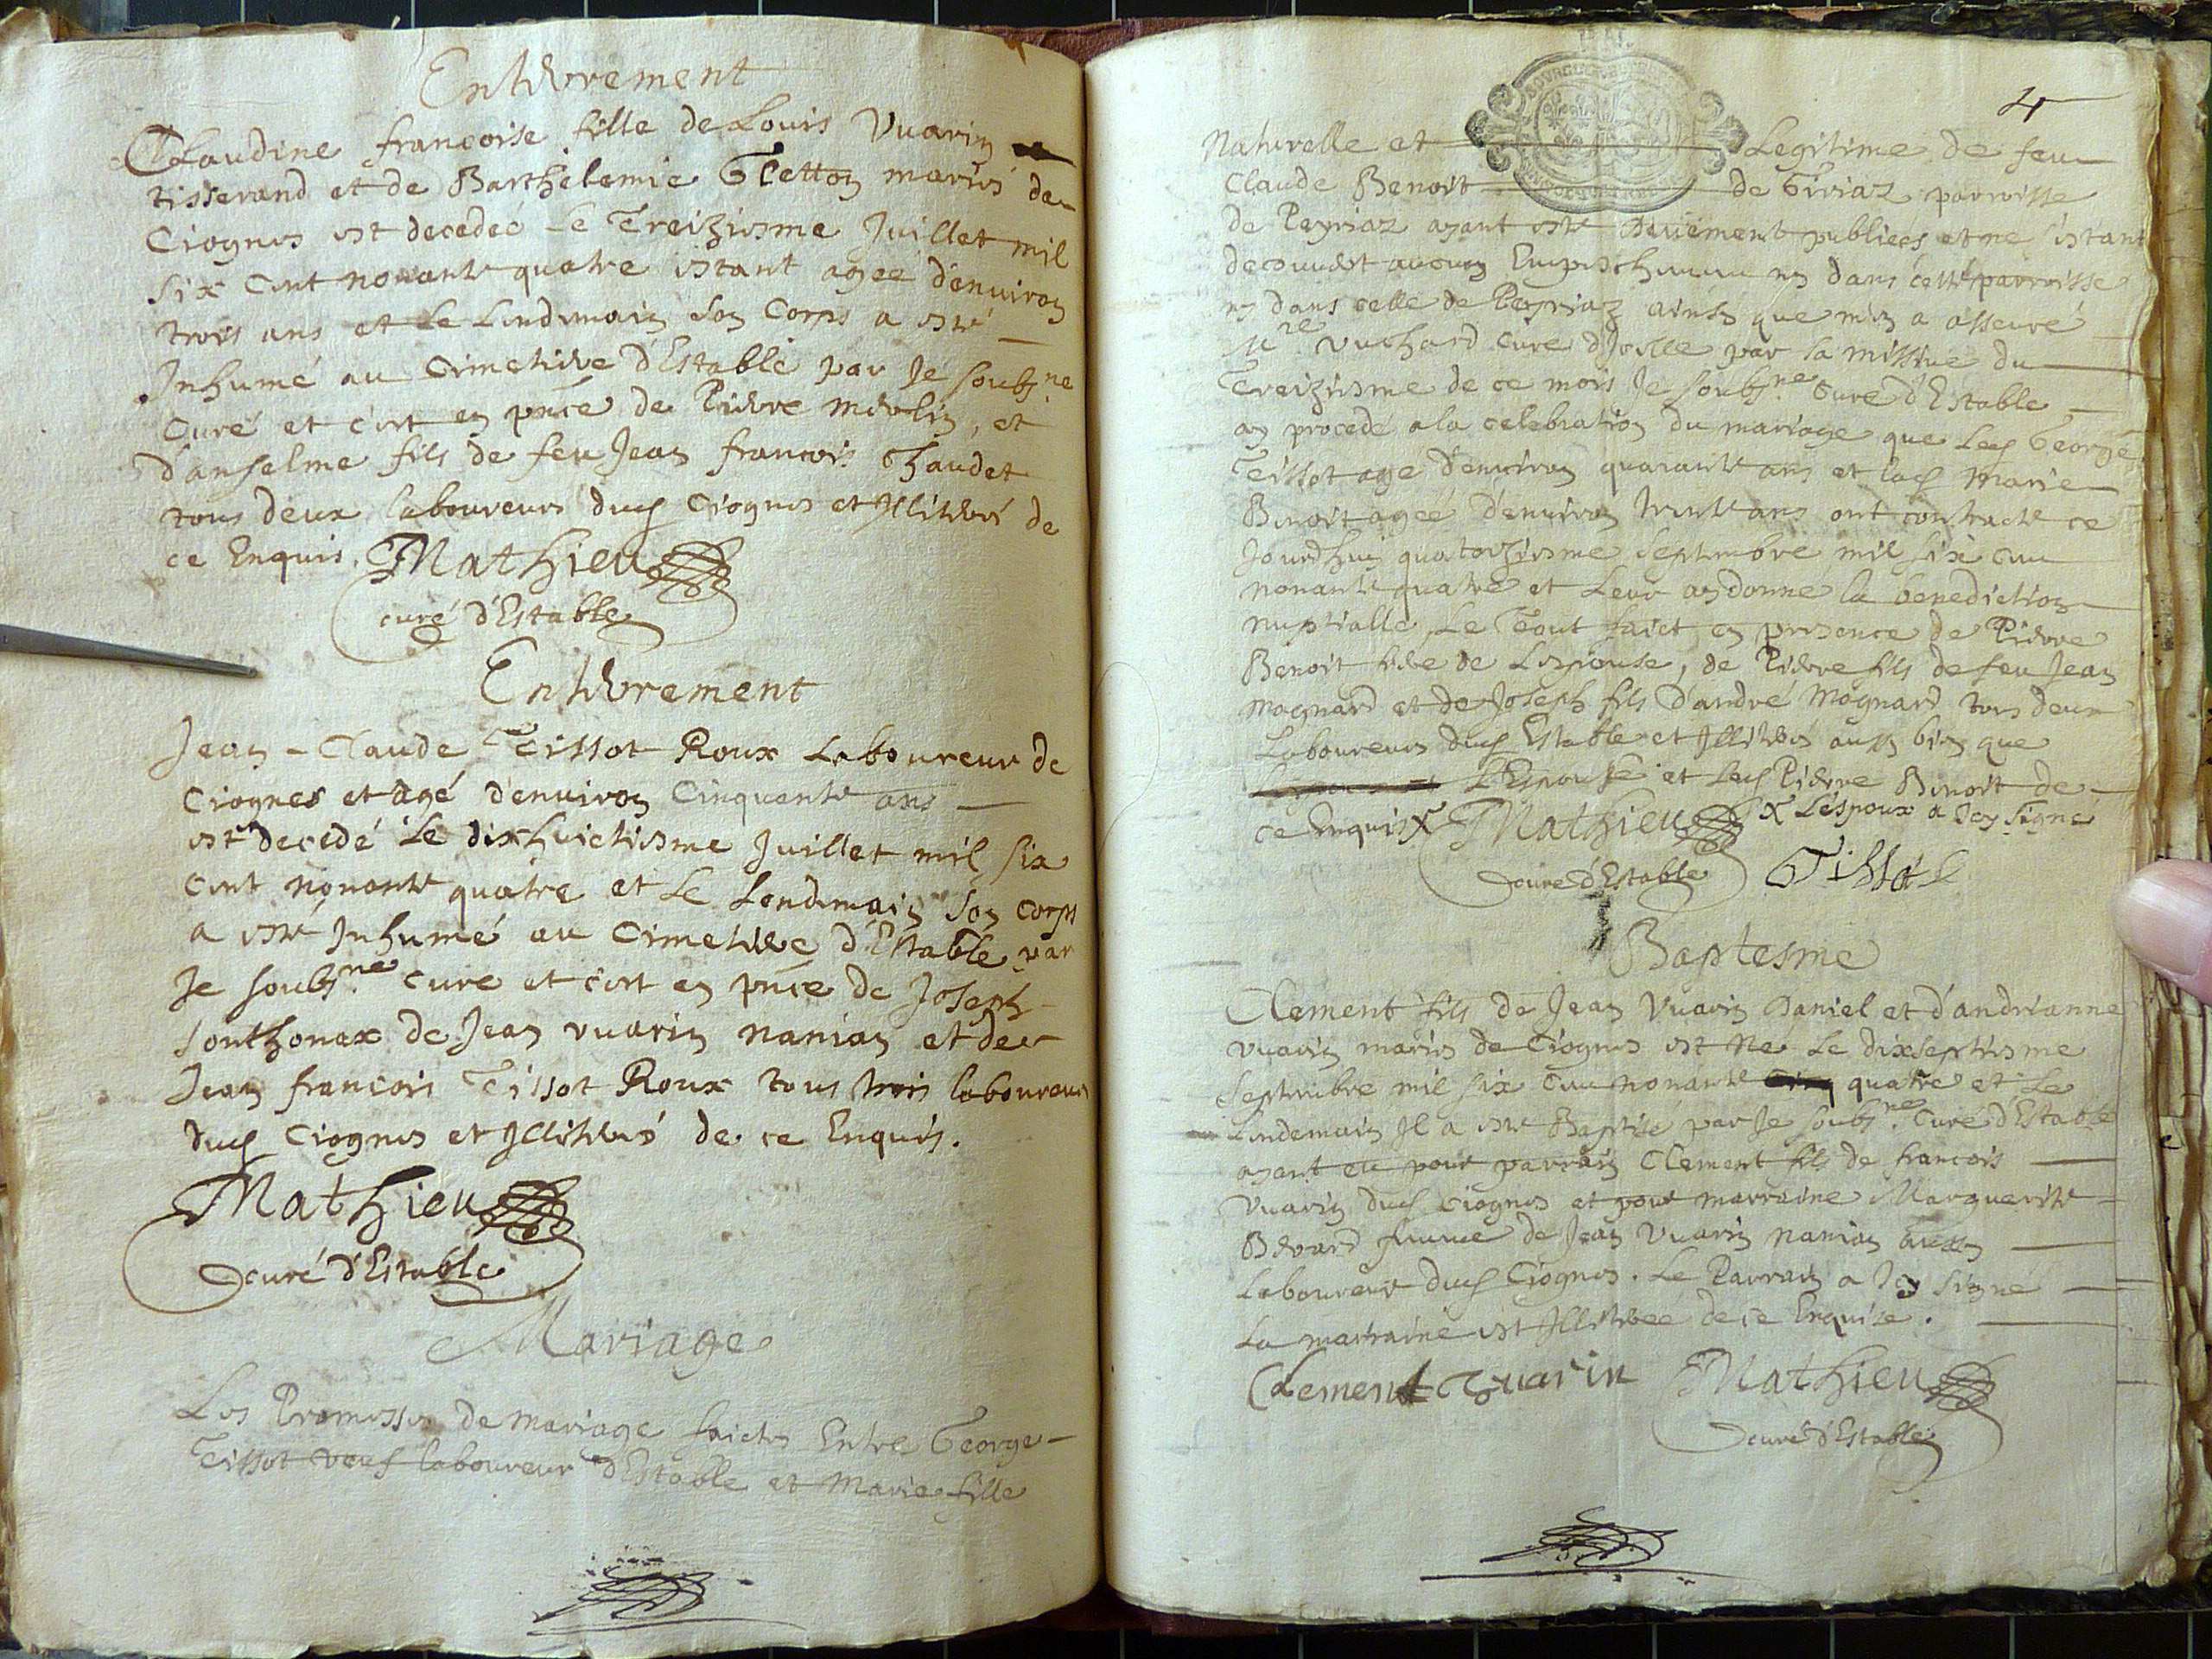 Enterrement
Claudine françoise fille de Louis Vuarin
tisserand et de Barthelemie Gletton mariés de
Ciognes est decedeé Le Treiziesme Juillet mil
six cent nonante quatre estant ageé d'environ
trois ans et Le Lendemain son Corps a esté
Inhumé au Cimetiere d'Estable par Je soubs.né
Curé et c'est en pnce de Pierre merlin, et
d'anselme fils de feu Jean françois Chaudet
tous deux laboureurs dud Ciognes et Illiterés de
ce Enquis. Mathieu
curé d'Estable
Enterrement
Jean-Claude Tissot Roux Laboureur de
Ciognes et agé d'environ Cinquante ans
est decedé Le dixhuictiesme Juillet mil six
cent nonante quatre et Le Lendemain son corps
a esté Inhumé au Cimetiere d'Estable par
Je soubs.né curé et c'est en pnce de Joseph
Southonax de Jean vuarin nanian et de
Jean françois Tissot Roux tous trois laboureurs
dud Ciognes et Illiterés de ce Enquis.
Mathieu
curé d'Estable
Mariage
Les Promesses de mariage faictes Entre George
Teissot veuf laboureur d'Estable et Marie fille
4
Naturelle et Legitime de feu
Claude Benoit de Giriaz parroisse
de Peyriaz ayant esté deüement publieés et ne s'estant
decouvert aucun Empeschement ny dans cette parroisse
ny dans celle de Peyriaz ainsy que m'en a asseuré
Mre Vuchard Curé d' par sa missive du
Treiziesme de ce mois Je soubs.né Curé d'Estable
ay procedé a la celebration du mariage que Led George
Teissot agé d'environ quarante ans et lad Marie
Benoit ageé d'environ trente ans ont contracté ce
Jourd'huy quatorziesme septembre mil six cent
nonante quatre et Leur ay donné la benediction
nuptialle, Le Tout faict en presence de Pierre
Benoit frere de L'espouse, de Pierre fils de feu Jean
mognard et de Joseph fils d'andré Mognard tous deux
Laboureurs dud Estable et Illiterés aussy bien que
L'Espouse et led Pierre Benoit de
ce Enquis X Mathieu X L'espoux a Icy signé
curé d'Estable Tissot
Baptesme
Clement fils de Jean Vuarin Daniel et d'andrianne
vuarin mariés de Ciognes est Né Le dixseptiesme
septembre mil six cent nonante quatre et Le
Lendemain Il a esté Baptisé par Je soubs.né Curé d'Estable
ayant eu pour parrain Clement fils de françois
Vuarin dud Ciognes et pour marraine Marguerite
Berard femme de Jean Vuarin nanian aussy
Laboureur dud Ciognes. Le Parrain a Icy signé
La marraine est Illitereé de ce Enquise.
Clement Vuarin Mathieu
curé d'Estable